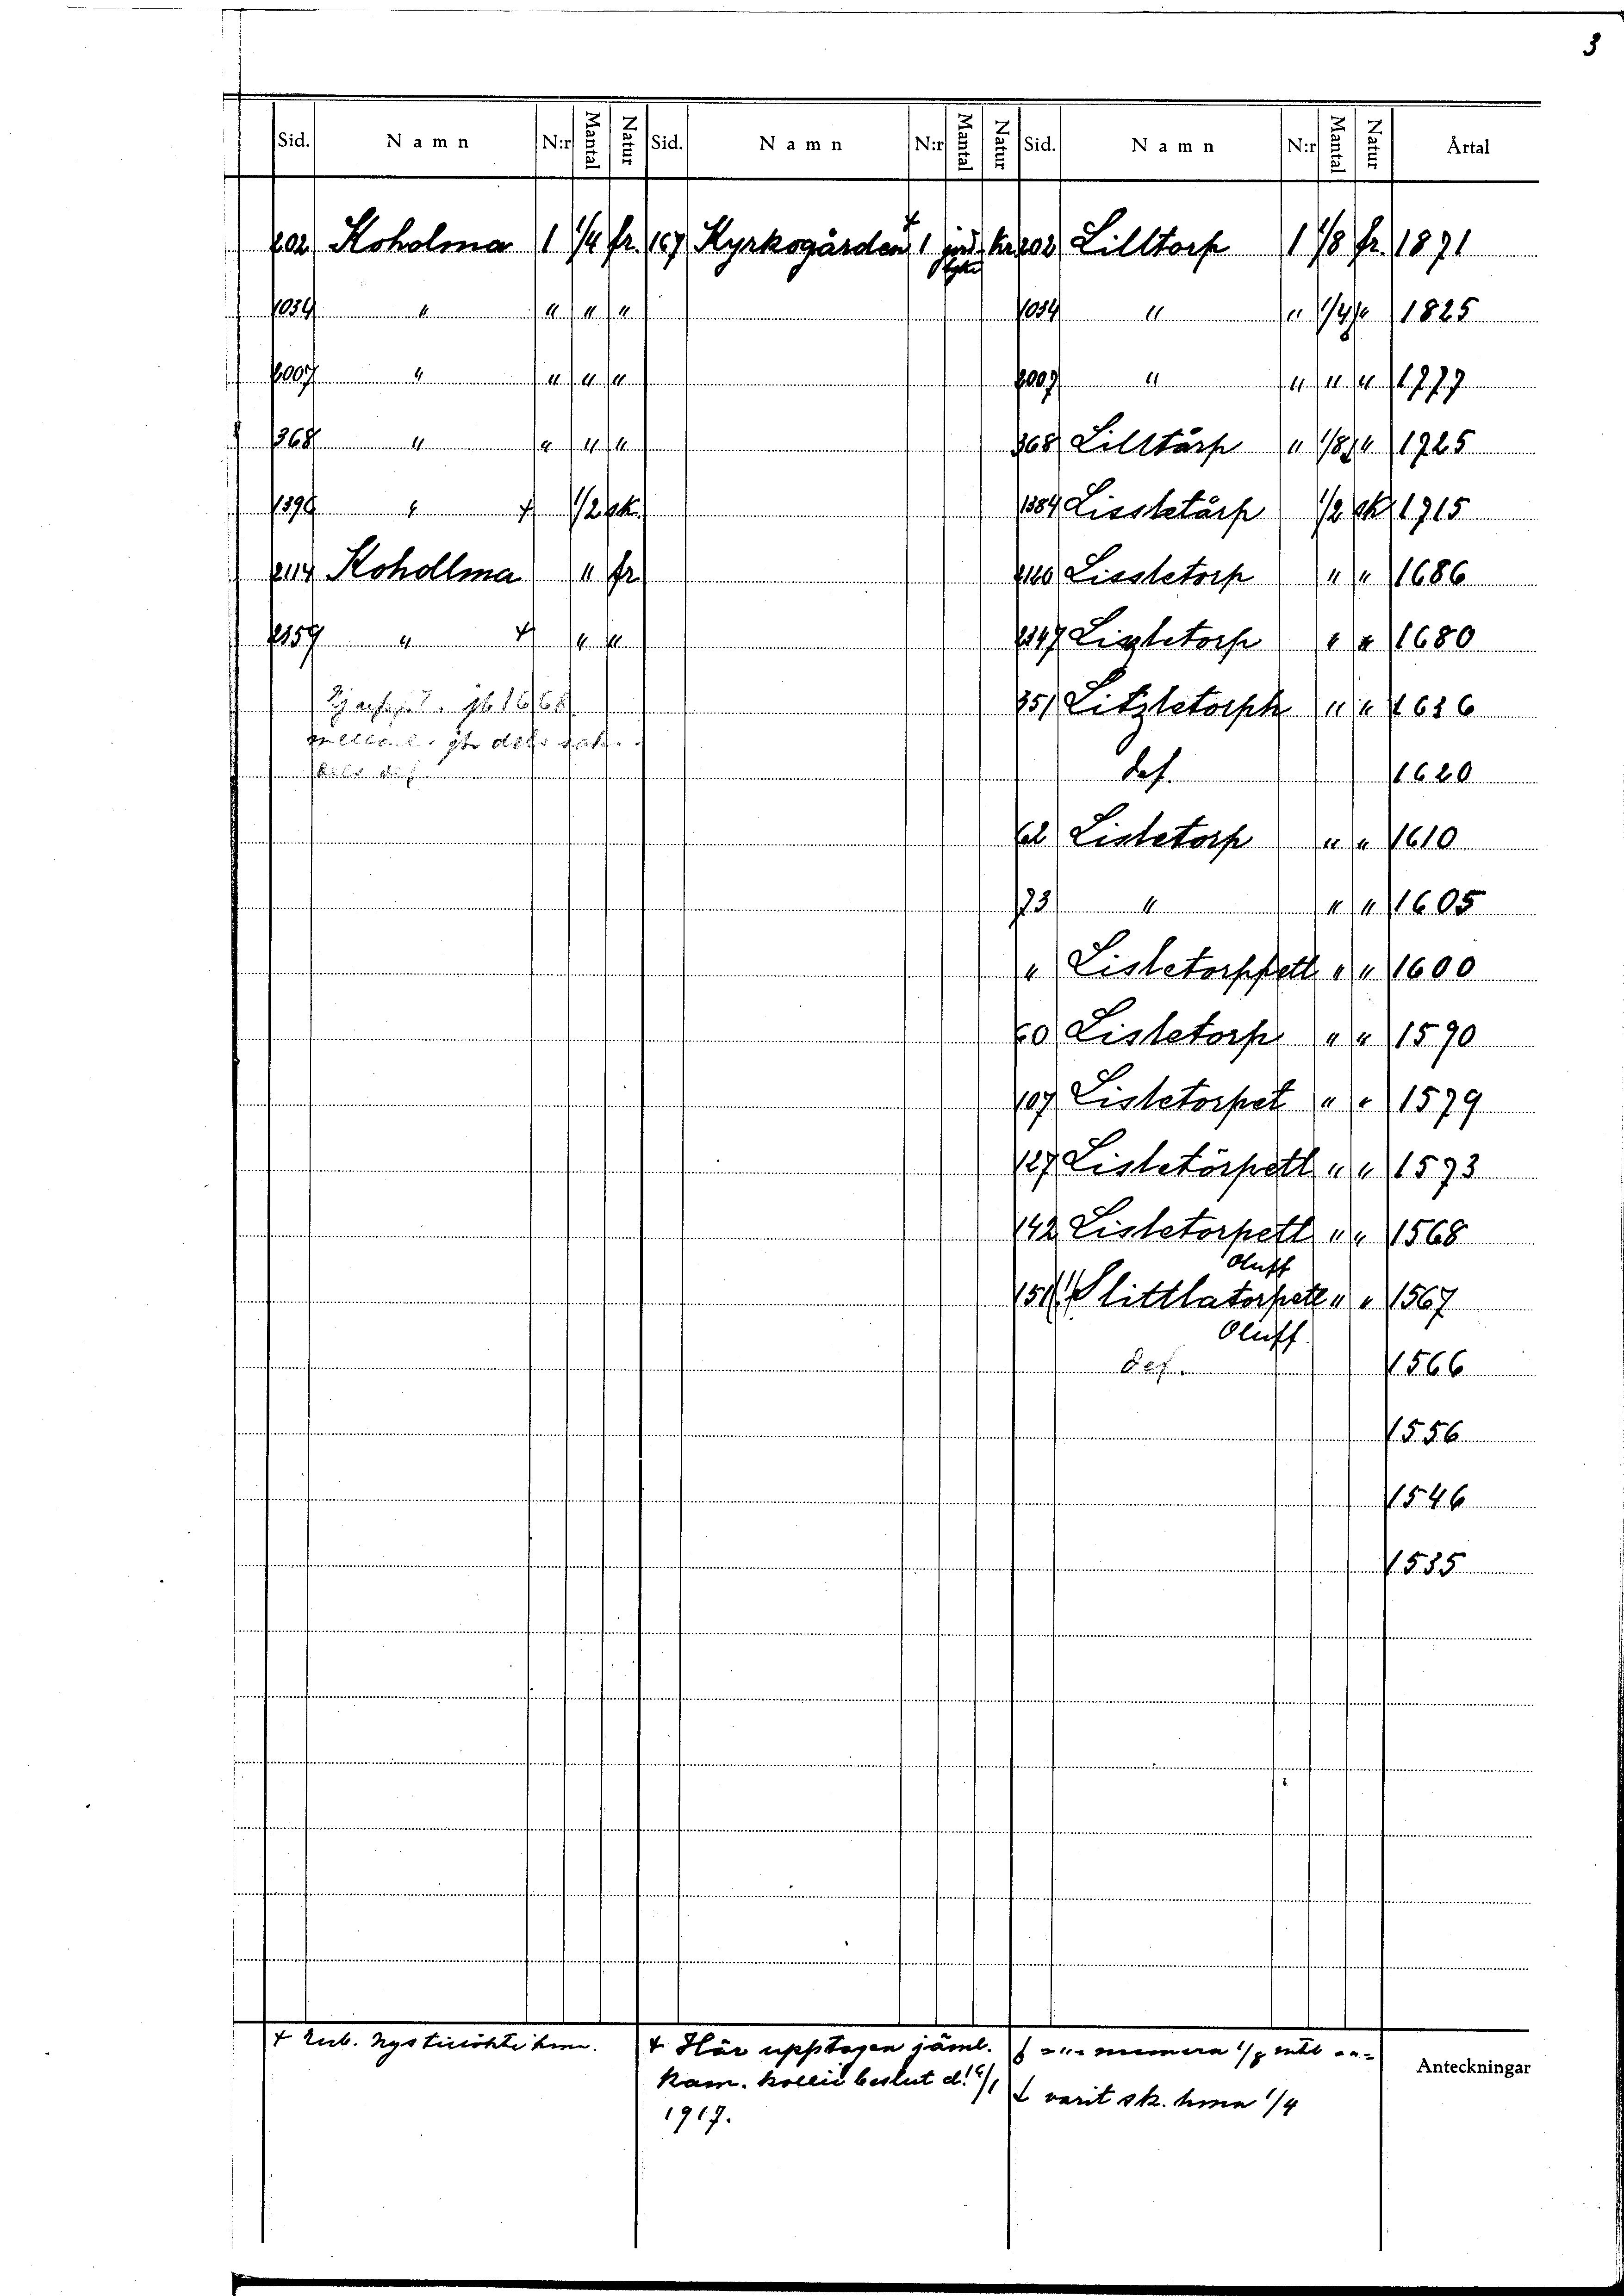 3
Sid. Namn N:r Mantal Natur Sid. Namn N:r Mantal Natur Sid. Namn N:r Mantal Natur Årtal
202 Koholma 1 1/4 fr. 167 Kyrkogården + 1 jord kr 202 Lilltorp 1 1/8 fr. 1871
lght
1034 " " " " 1034 " " 1/4 " 1825
2007 " " " " 2007 " " " " 1777
368 " " " " 368 Lilltårp " 1/8 " 1725
1390 " + 1/2 sk. 1384 Lissletårp 1/2 sk 1715
2114 Kohollma " fr 2120 Lissletorp " " 1686
2359 " + " " 2347 Lissletorp " " 1680
jb 1668 351 Litzletorph " " 1636
def. 1620
62 Lisletorp " " 1610
73 " " " 1605
" Lisletorppett " " 1600
60 Lisletorp " " 1590
107 Lisletorpet " " 1579
127 Lisletörpett " " 1573
142 Lisletorpett " " 1568
Oluff
151 Slittlatorpett " " 1567
Oluff
def. 1566
1556
1546
1535
+ Rub. hmn. + Här upptagen jäml. numera 1/8 mtl
kam. kollii beslut d. 1917. varit sk. hmn 1/4
Anteckningar